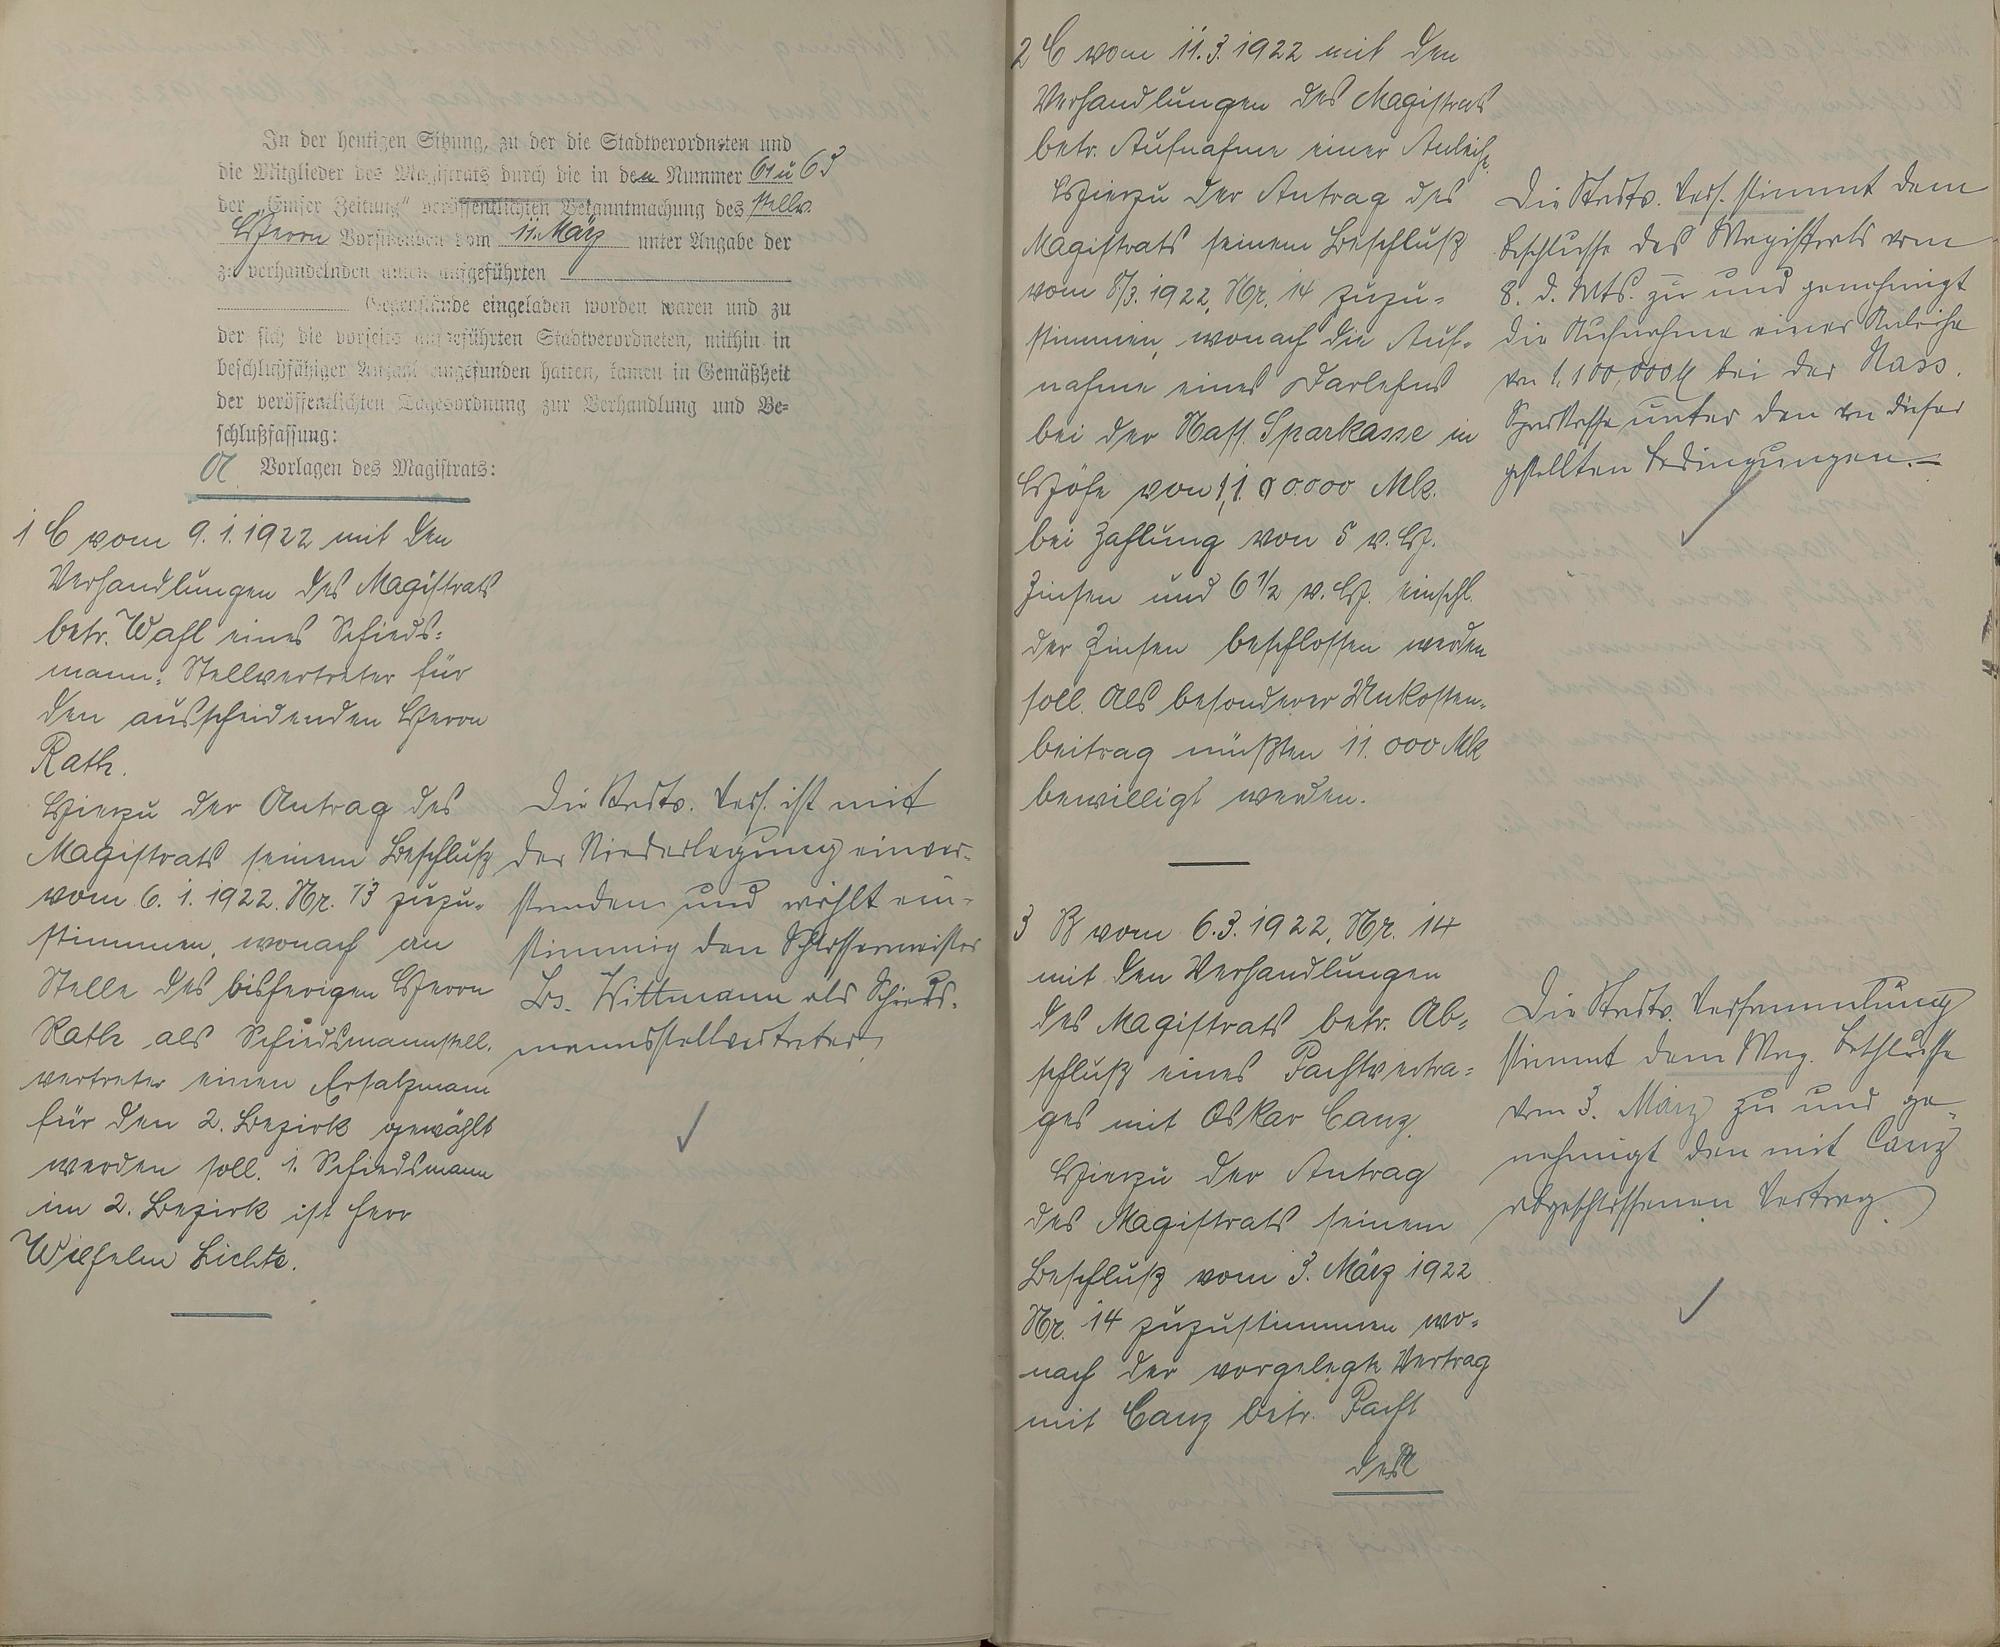 In der heutigen Sitzung, zu der die Stadtverordneten und
die Mitglieder des Magistrats durch die in den Nummer 61 u 63
der „Emser Zeitung“ veröffentlichten Bekanntmachung des stellv.
Herrn Vorsitzenden vom 11. März unter Angabe der
zu verhandelnden unten aufgeführten
Gegenstände eingeladen worden waren und zu
der sich die vorseits aufgeführten Stadtverordneten, mithin in
beschlußfähiger Anzahl eingefunden hatten, kamen in Gemäßheit
der veröffentlichten Tagesordnung zur Verhandlung und Be=
schlußfassung:
A Vorlagen des Magistrats:
1 C vom 9.1.1922 mit den
Verhandlungen des Magistrats
betr. Wahl eines Schieds=
mann= Stellvertreter für
den ausscheidenden Herrn
Rath.
Hierzu der Antrag des
Magistrats seinem Beschluß
vom 6.1.1922. Nr. 13 zuzu=
stimmen, wonach an
Stelle des bisherigen Herrn
Rath als Schiedsmannstell.
vertreter einen Ersatzmann
für den 2. Bezirk gewählt
werden soll. 1. Schiedsmann
im 2. Bezirk ist Herr
Wilhelm Lichte.
Die Stadtv. Vers. ist mit
der Niederlegung einver=
standen und wählt ein=
stimmig den Schlossermeister
Ls. Wittmann als Schieds=
mannsstellvertreter
2 C vom 11.3.1922 mit den
Verhandlungen des Magistrats
betr. Aufnahme einer Anleihe.
Hierzu der Antrag des
Magistrats seinem Beschluß
vom 8/3.1922, Nr. 14 zuzu=
stimmen, wonach die Auf=
nahme eines Darlehns
bei der Nass. Sparkasse in
Höhe von 1,100000 Mk.
bei Zahlung von 5 v. H.
Zinsen und 6 1/2 v. H. einschl.
der Zinsen beschlossen werden
soll. Als besonderer Unkosten=
beitrag müßten 11.000 Mk
bewilligt werden.
Die Stadtv. Vers. stimmt dem
Beschlusse des Magistrats vom
8. d. Mts. zu und genehmigt
die Aufnahme einer Anleihe
von 1.100,000 M bei der Nass.
Sparkasse unter den von dieser
gestellten Bedingungen.
3 B vom 6.3.1922, Nr. 14
mit den Verhandlungen
des Magistrats betr. Ab=
schluß eines Pachtvertra=
ges mit Oskar Canz.
Hierzu der Antrag
des Magistrats seinem
Beschluß vom 3. März 1922
Nr. 14 zuzustimmen wo=
nach der vorgelegte Vertrag
mit Canz betr. Pacht
des
Die Stadtv. Versammlung
stimmt dem Mag. Beschlusse
vom 3. März zu und ge=
nehmigt den mit Canz
abgeschlossenen Vertrag.